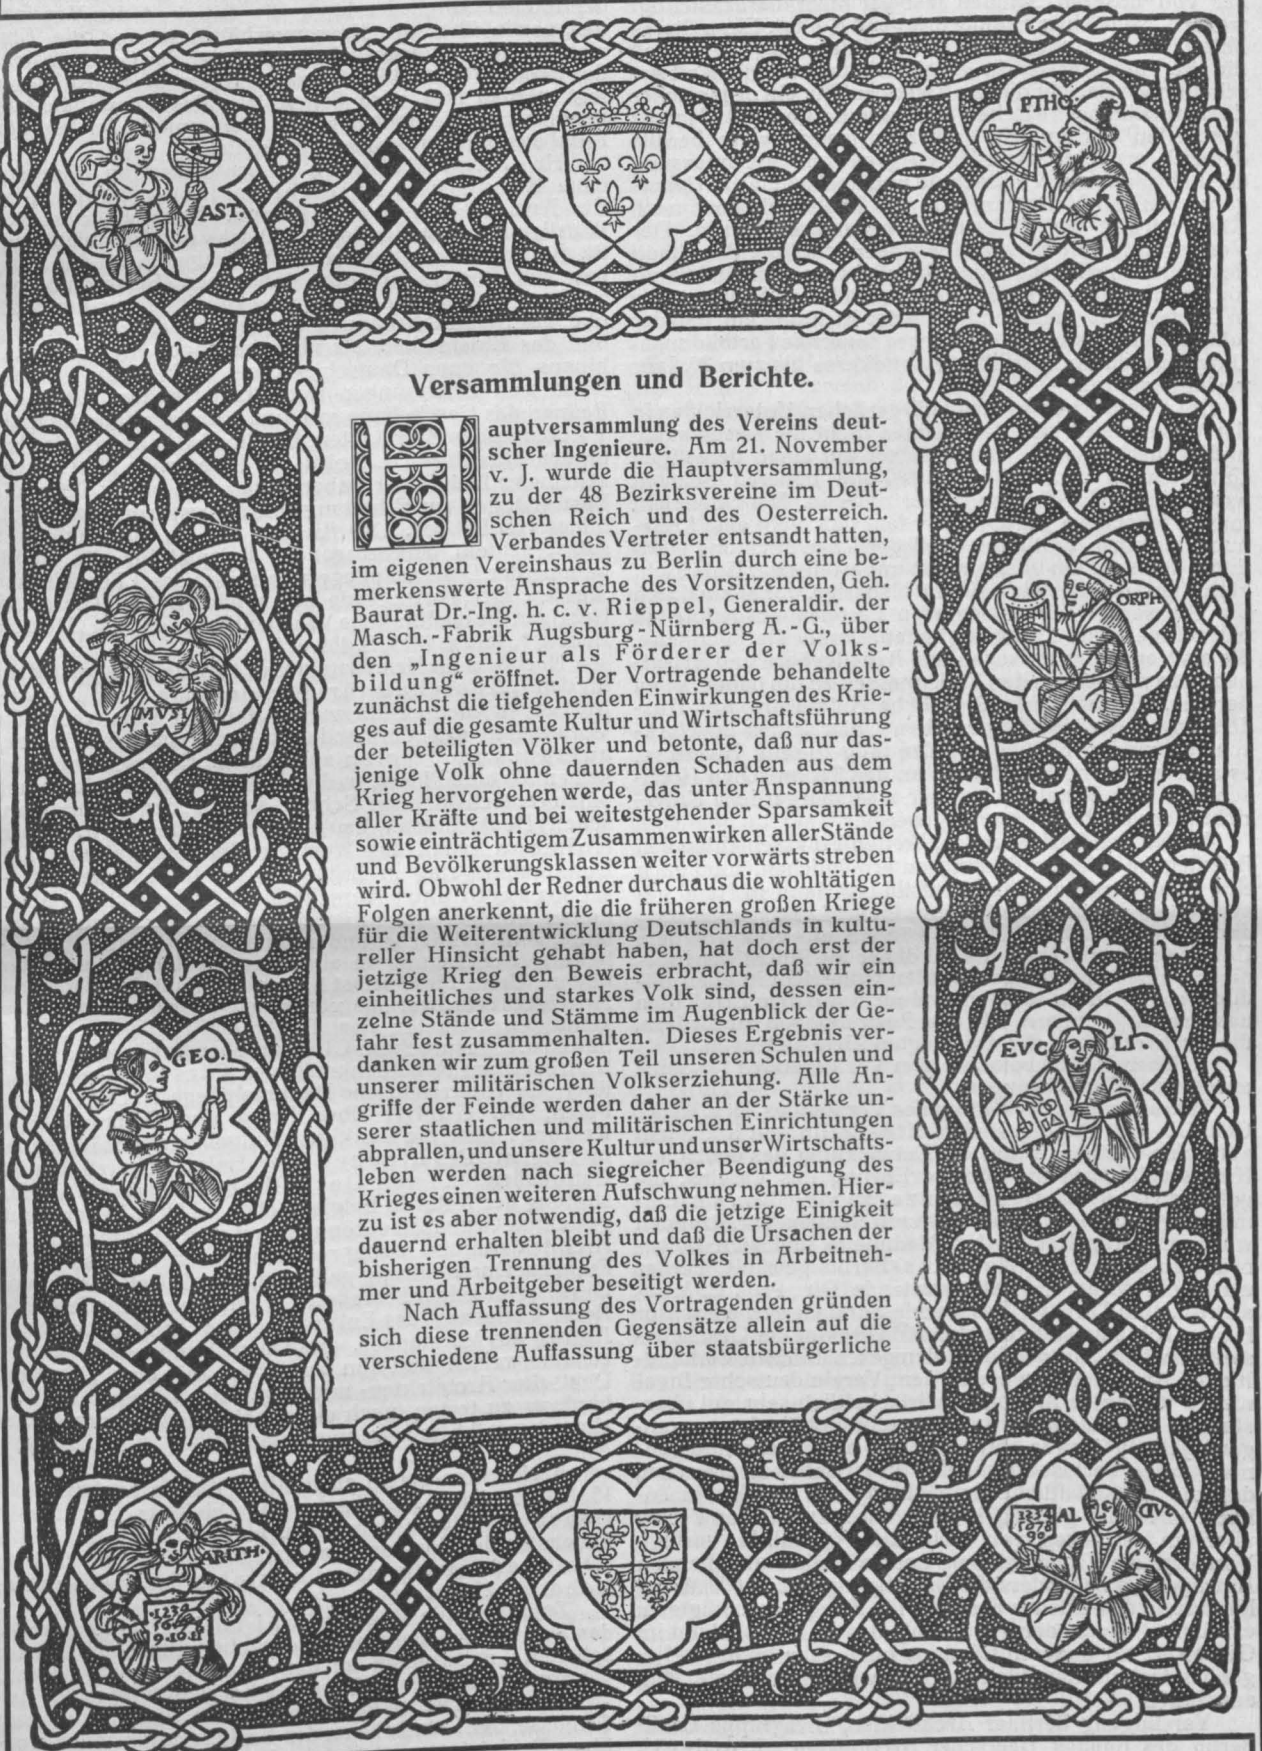 PTHO.
AST.
Versammlungen und Berichte.
Hauptversammlung des Vereins deut-
scher Ingenieure. Am 21. November
v. J. wurde die Hauptversammlung,
zu der 48 Bezirksvereine im Deut-
schen Reich und des Oesterreich.
Verbandes Vertreter entsandt hatten,
im eigenen Vereinshaus zu Berlin durch eine be-
merkenswerte Ansprache des Vorsitzenden, Geh.
Baurat Dr.-Ing. h. c. v. Rieppel, Generaldir. der
Masch.-Fabrik Augsburg-Nürnberg A.-G., über
den „Ingenieur als Förderer der Volks-
bildung“ eröffnet. Der Vortragende behandelte
zunächst die tiefgehenden Einwirkungen des Krie-
ges auf die gesamte Kultur und Wirtschaftsführung
der beteiligten Völker und betonte, daß nur das-
jenige Volk ohne dauernden Schaden aus dem
Krieg hervorgehen werde, das unter Anspannung
aller Kräfte und bei weitestgehender Sparsamkeit
sowie einträchtigem Zusammenwirken aller Stände
und Bevölkerungsklassen weiter vorwärts streben
wird. Obwohl der Redner durchaus die wohltätigen
Folgen anerkennt, die die früheren großen Kriege
für die Weiterentwicklung Deutschlands in kultu-
reller Hinsicht gehabt haben, hat doch erst der
jetzige Krieg den Beweis erbracht, daß wir ein
einheitliches und starkes Volk sind, dessen ein-
zelne Stände und Stämme im Augenblick der Ge-
fahr fest zusammenhalten. Dieses Ergebnis ver-
danken wir zum großen Teil unseren Schulen und
unserer militärischen Volkserziehung. Alle An-
griffe der Feinde werden daher an der Stärke un-
serer staatlichen und militärischen Einrichtungen
abprallen, und unsere Kultur und unser Wirtschafts-
leben werden nach siegreicher Beendigung des
Krieges einen weiteren Aufschwung nehmen. Hier-
zu ist es aber notwendig, daß die jetzige Einigkeit
dauernd erhalten bleibt und daß die Ursachen der
bisherigen Trennung des Volkes in Arbeitneh-
mer und Arbeitgeber beseitigt werden.
Nach Auffassung des Vortragenden gründen
sich diese trennenden Gegensätze allein auf die
verschiedene Auffassung über staatsbürgerliche
ORPH
MVSI
EVCLI.
GEO.
AL
ARITH.